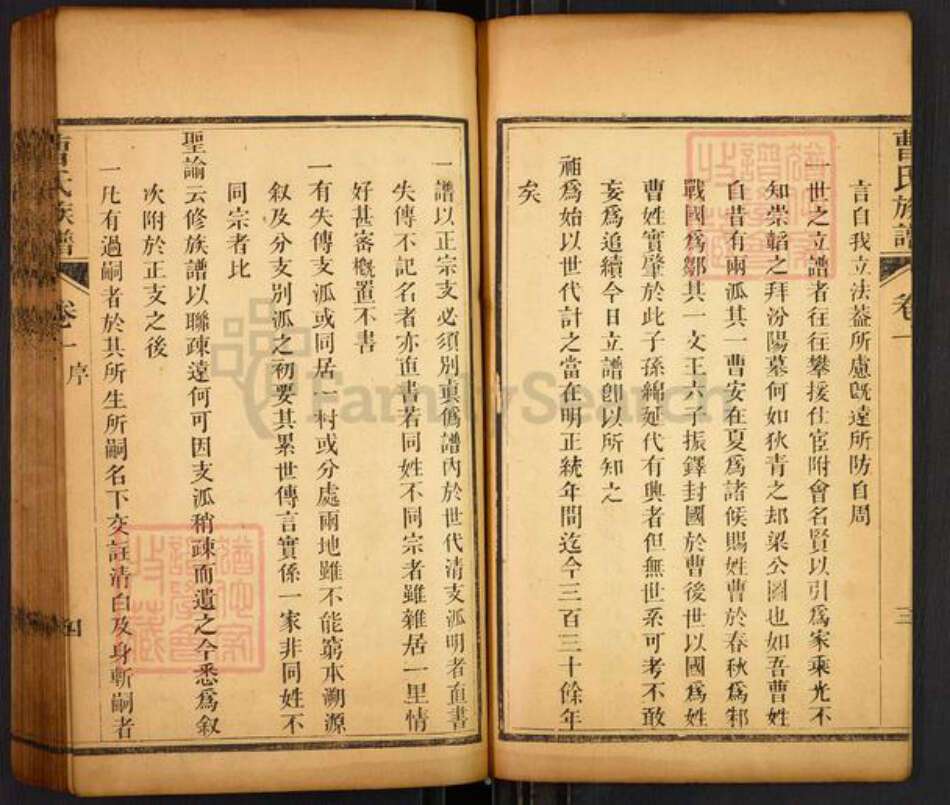 曹氏族譜 卷一 三
言自我立法葢所慮旣遠所防自周
一世之立譜者往往攀援仕宦附會名賢以引爲家乘光不
知崇韜之拜汾陽墓何如狄青之却梁公圖也如吾曹姓
自昔有兩派其一曹安在夏爲諸候賜姓曹於春秋爲邾
戰國爲鄒其一文王六子振鐸封國於曹後世以國爲姓
曹姓實肇於此子孫綿延代有興者但無世系可考不敢
妄爲追續今日立譜卽以所知之
祖爲始以世代計之當在明正統年間迄今三百三十餘年
矣
一譜以正宗支必須別眞僞譜內於世代清支派明者直書
失傳不記名者亦直書若同姓不同宗者雖雜居一里情
好甚密槪置不書
一有失傳支派或同居一村或分處兩地雖不能窮本溯源
叙及分支別派之初要其累世傳言實係一家非同姓不
同宗者比
聖諭云修族譜以聯疎遠何可因支派稍疎而遺之今悉爲叙
次附於正支之後
一凡有過嗣者於其所生所嗣名下交註清白及身斬嗣者
曹氏族譜 卷一 序 四
FamilySearch